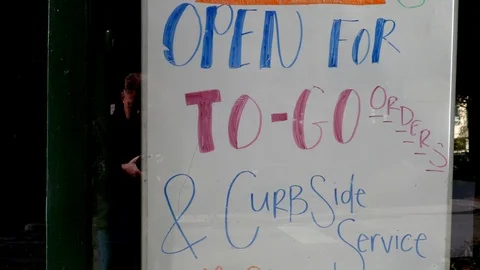 OPEN FOR
TO-GO ORDERS
& CURBSide
Service